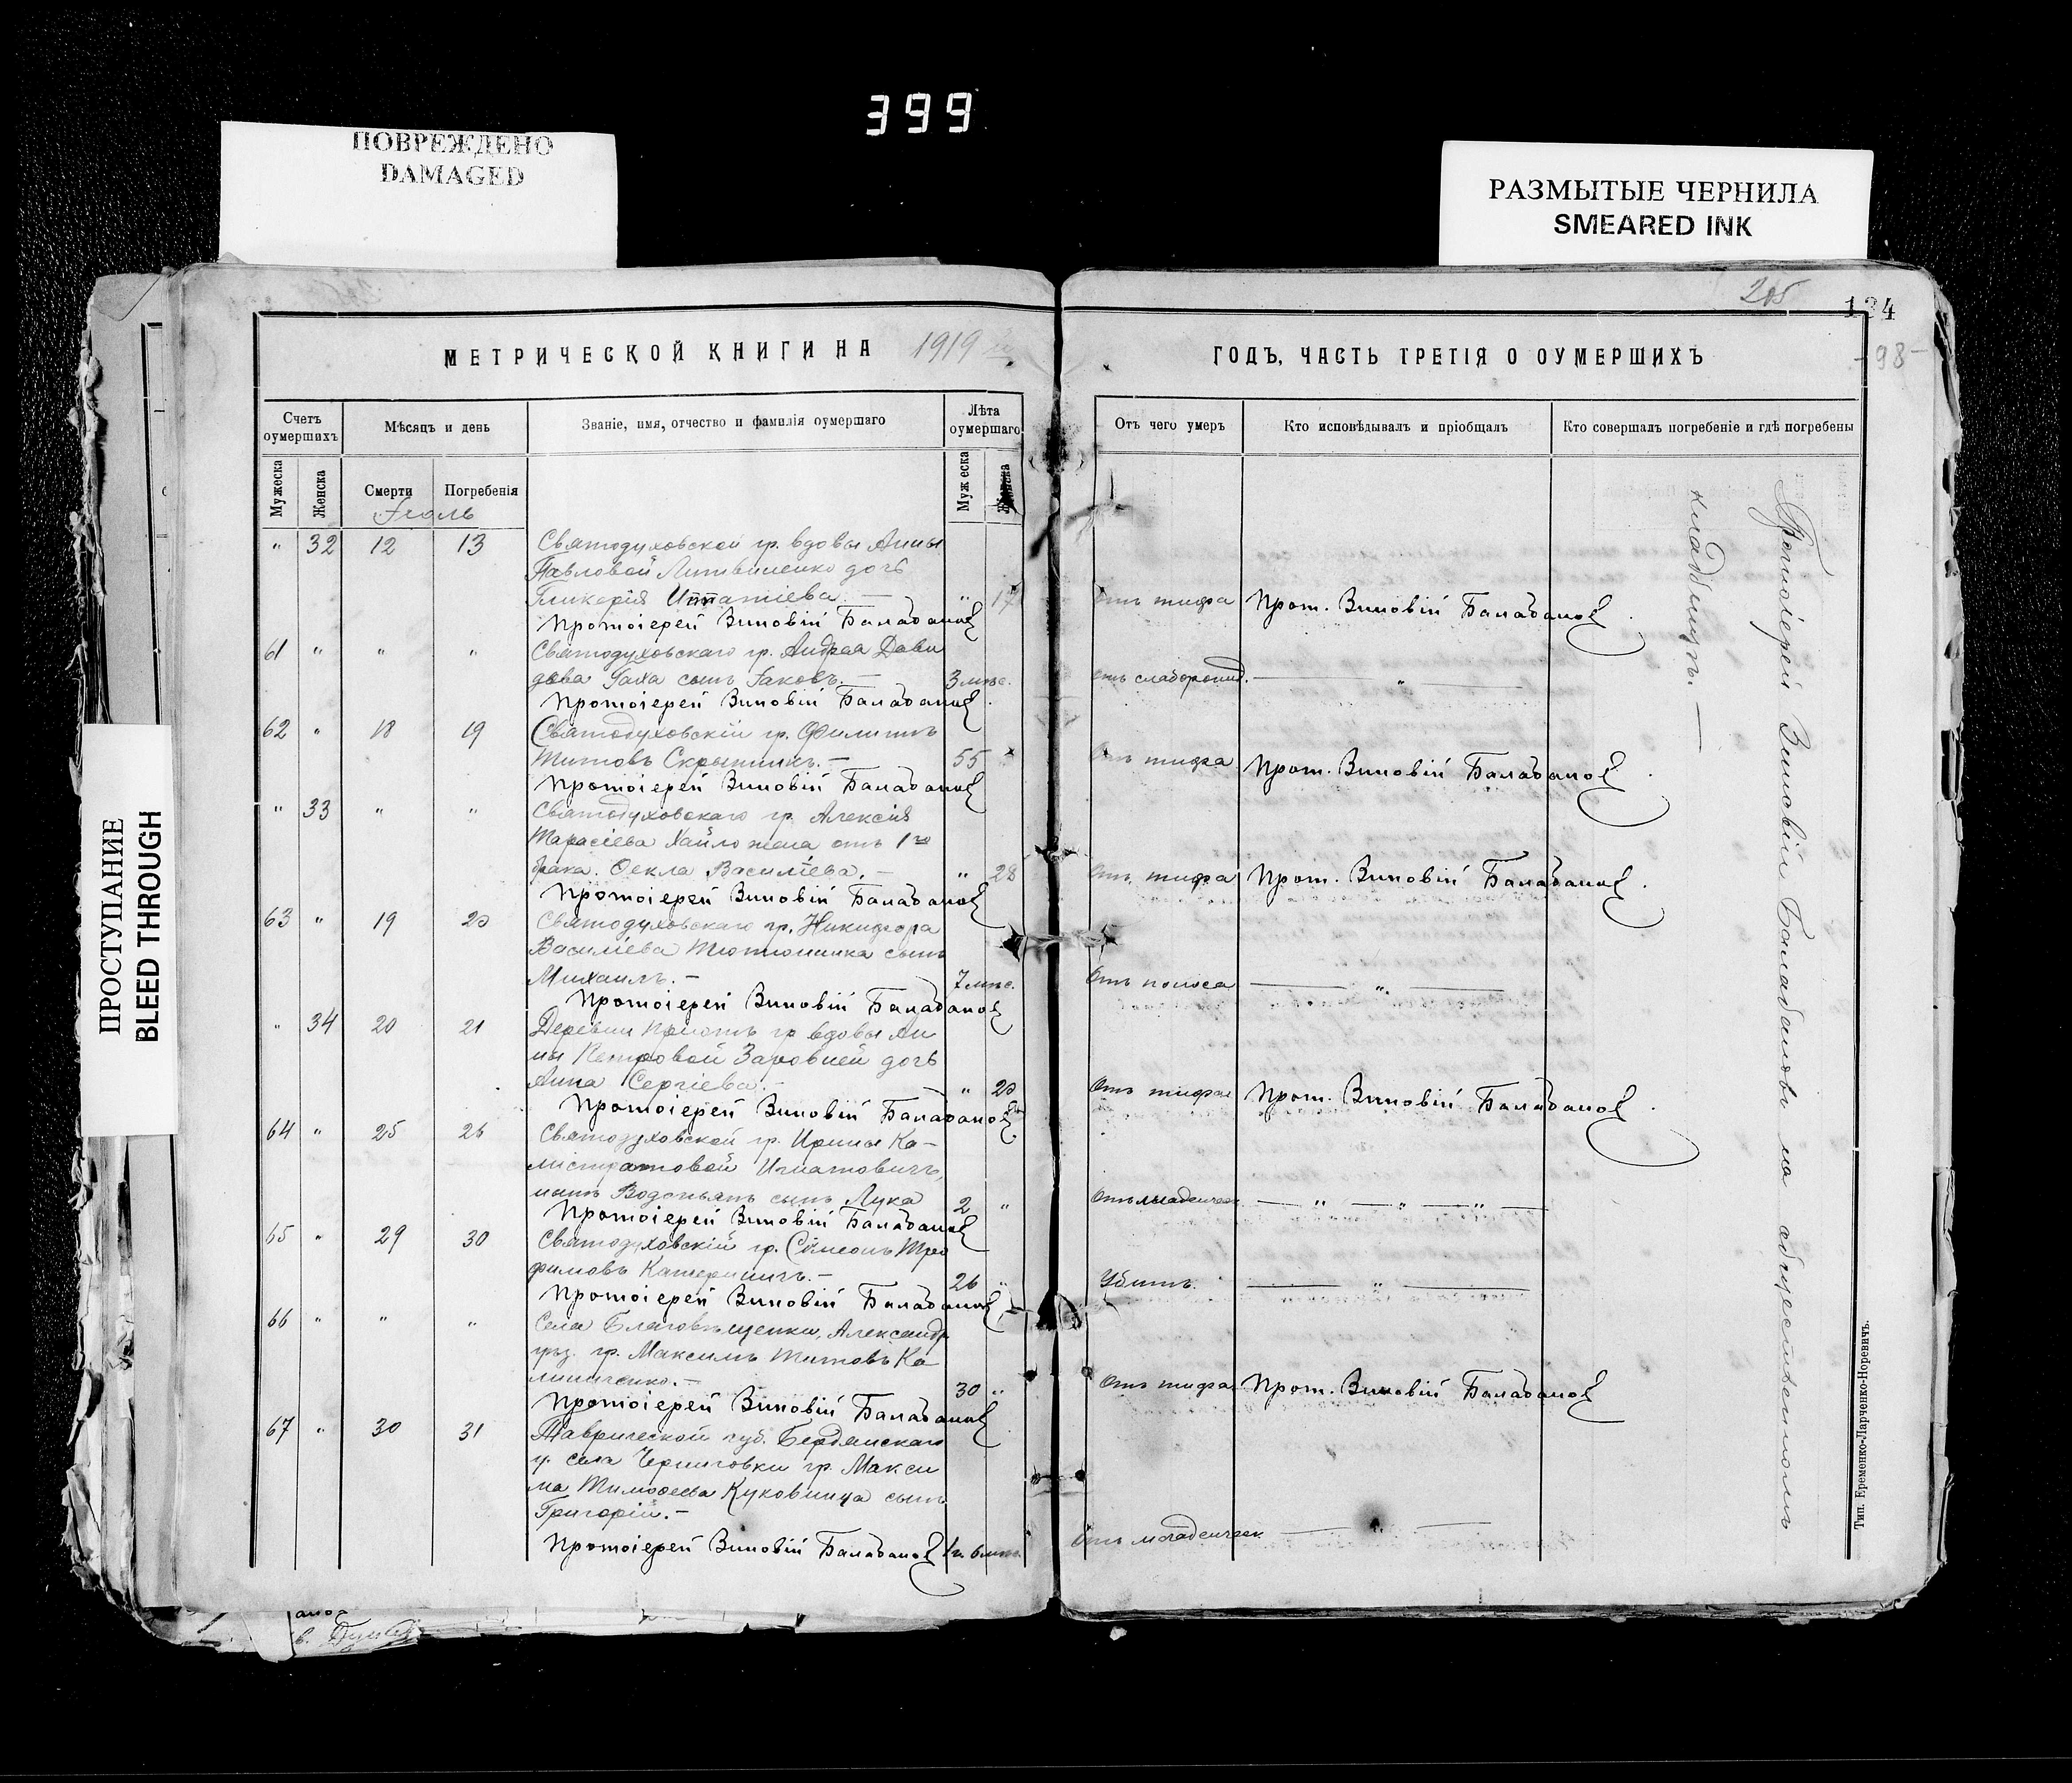 399
ПОВРЕЖДЕНО
DAMAGED
РАЗМЫТЫЕ ЧЕРНИЛА
SMEARED INK
ПРОСТУПАНИЕ
BLEED THROUGH
205
134
-98-
МЕТРИЧЕСКОЙ КНИГИ НА 1919
ГОДЪ, ЧАСТЬ ТРЕТІЯ О ОУМЕРШИХЪ
Счетъ оумершихъ
Мѣсяцъ и день
Званіе, имя, отчество и фамилія оумершаго
Лѣта оумершаго
Отъ чего умеръ
Кто исповѣдывалъ и пріобщалъ
Кто совершалъ погребеніе и гдѣ погребены
Мужеска
Женска
Смерти
Погребенія
Мужеска
Іюль
" 32 12 13 Святодуховской гр. вдовы Анны
Павловой Литвиненко дочь
Гликерія Игнатіева. — " 17 отъ тифа Прот. Зиновій Балабановъ
Протоіерей Зиновій Балабановъ
61 " " " Святодуховскаго гр. Андрея Дави
дова Гаха сынъ Іаковъ. — 3 мѣс. отъ слаборожд. — " —
Протоіерей Зиновій Балабановъ
62 " 18 19 Святодуховскій гр. Филиппъ
Титовъ Скрыпникъ. — 55 Отъ тифа Прот. Зиновій Балабановъ
Протоіерей Зиновій Балабановъ
" 33 " " Святодуховскаго гр. Алексія
Тарасіева Хайло жена отъ 1го
брака Ѳекла Василіева. — " 28 Отъ тифа Прот. Зиновій Балабановъ
Протоіерей Зиновій Балабановъ
63 " 19 20 Святодуховскаго гр. Никифора
Василіева Тютюника сынъ
Михаилъ. — 7 мѣс. Отъ поноса — " —
Протоіерей Зиновій Балабановъ
" 34 20 21 Деревни Пріютъ гр. вдовы Ан
ны Петровой дочь
Анна Сергіева. — " 20 Отъ тифа Прот. Зиновій Балабановъ
Протоіерей Зиновій Балабановъ
64 " 25 26 Святодуховской гр. Ирины Ка-
листратовой
Водопьянъ сынъ Лука 2 " Отъ младенческ — " — " — " —
Протоіерей Зиновій Балабановъ
65 " 29 30 Святодуховскій гр. Симеонъ Тро
фимовъ Катериничъ. — 26 " Убитъ. — " —
Протоіерей Зиновій Балабановъ
66 " " " Села Благовѣщенки, Александр.
уѣз. гр. Максимъ Титовъ Ка
линиченко. — 30 " Отъ тифа Прот. Зиновій Балабановъ
Протоіерей Зиновій Балабановъ
67 " 30 31 Таврической губ. Бердянскаго
у. села Черниговки гр. Макси
ма Тимоѳеева Куковица сынъ
Григорій. —
Протоіерей Зиновій Балабановъ 1 г. 6 мѣс. Отъ младенческ — " —
Протоіерей Зиновій Балабановъ на общественномъ
кладбищѣ. —
Тип. Еременко-Ларченко-Норевичъ.